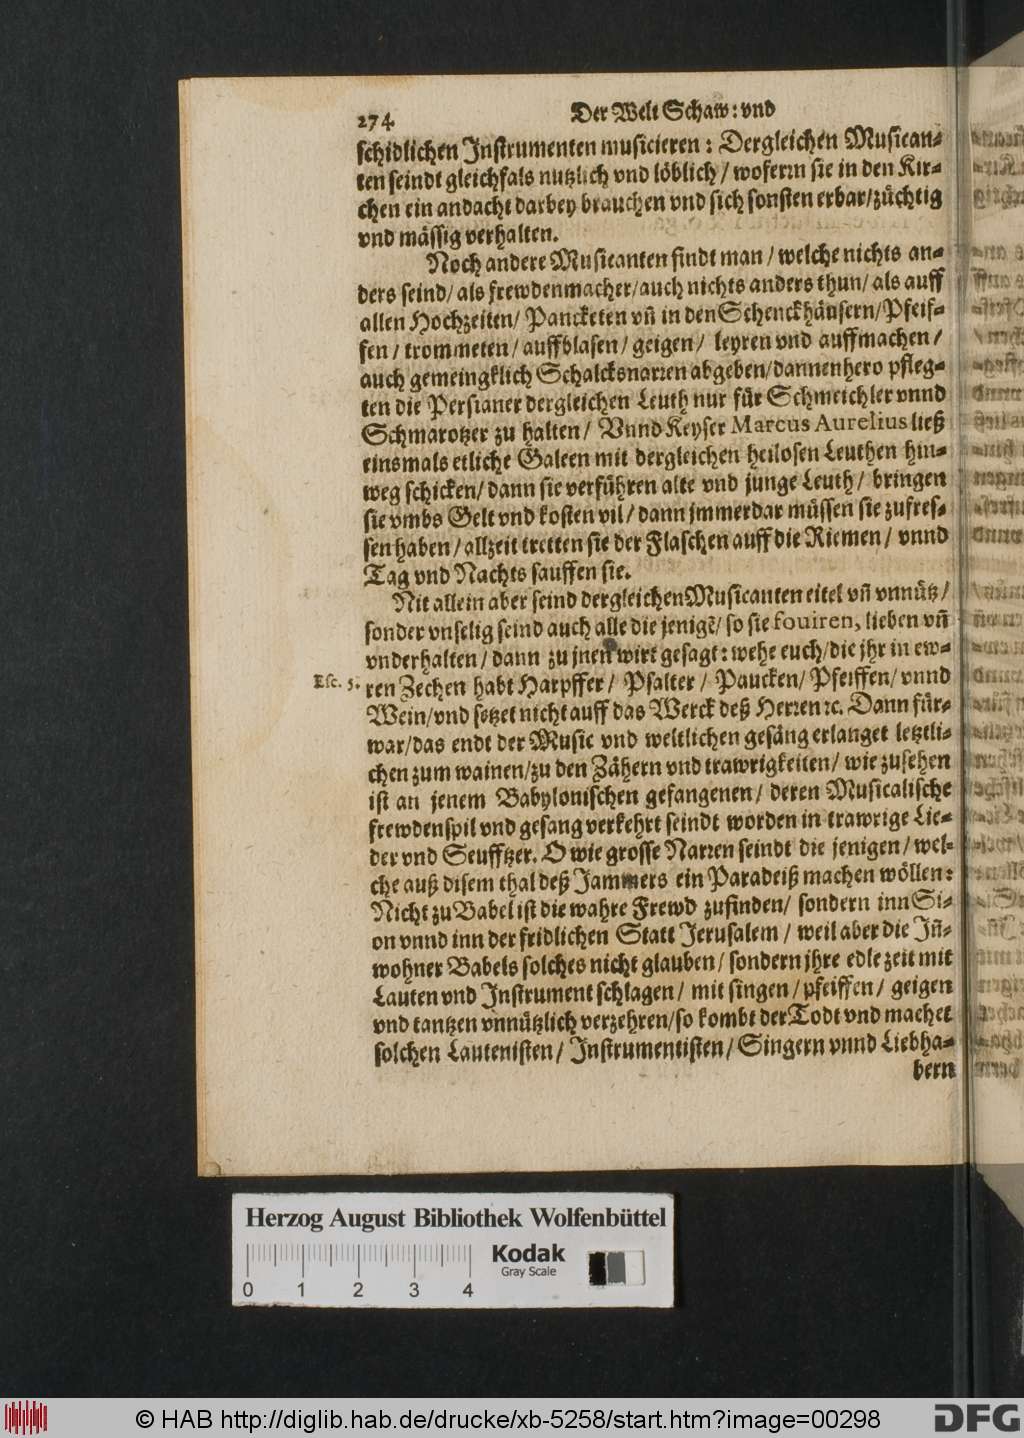 274. Der Welt Schaw: vnd
schidlichen Instrumenten musicieren: Dergleichen Musican-
ten seindt gleichfals nutzlich vnd löblich / wofern sie in den Kir-
chen ein andacht darbey brauchen vnd sich sonsten erbar/züchtig
vnd mässig verhalten.
Noch andere Musicanten findt man / welche nichts an-
ders seind/ als frewdenmacher/auch nichts anders thun/ als auff
allen Hochzeiten/ Pancketen vñ in den Schenckhäusern/Pfeif-
fen / trommeten / auffblasen / geigen / leyren vnd auffmachen /
auch gemeingklich Schalcksnarren abgeben/dannenhero pfleg-
ten die Persianer dergleichen Leuth nur für Schmeichler vnnd
Schmarotzer zu halten / Vnnd Keyser Marcus Aurelius ließ
einsmals etliche Galeen mit dergleichen heilosen Leuthen hin-
weg schicken/ dann sie verführen alte vnd junge Leuth / bringen
sie vmbs Gelt vnd kosten vil / dann jmmerdar müssen sie zufres-
sen haben / allzeit tretten sie der Flaschen auff die Riemen / vnnd
Tag vnd Nachts sauffen sie.
Nit allein aber seind dergleichen Musicanten eitel vñ vnnütz /
sonder vnselig seind auch alle die jenigẽ/ so sie fouiren, lieben vñ
vnderhalten / dann zu jnen wirt gesagt: wehe euch/die jhr in ew-
Esc. 5. ren Zechen habt Harpffer / Psalter / Paucken/ Pfeiffen/ vnnd
Wein/vnd setzet nicht auff das Werck deß Herren ꝛc. Dann für-
war/das endt der Music vnd weltlichen gesäng erlanget letztli-
chen zum wainen/zu den Zähern vnd trawrigkeiten/ wie zusehen
ist an jenem Babylonischen gefangenen / deren Musicalische
frewdenspil vnd gesang verkehrt seindt worden in trawrige Lie-
der vnd Seufftzer. O wie grosse Narren seindt die jenigen / wel-
che auß disem thal deß Jammers ein Paradeiß machen wöllen:
Nicht zu Babel ist die wahre Frewd zufinden/ sondern inn Si-
on vnnd inn der fridlichen Statt Jerusalem / weil aber die Jñ-
wohner Babels solches nicht glauben / sondern jhre edle zeit mit
Lauten vnd Instrument schlagen / mit singen / pfeiffen / geigen
vnd tantzen vnnützlich verzehren/so kombt der Todt vnd machet
solchen Lautenisten / Instrumentisten / Singern vnnd Liebha-
bern
Herzog August Bibliothek Wolfenbüttel
Kodak
Gray Scale
0 1 2 3 4
© HAB http://diglib.hab.de/drucke/xb-5258/start.htm?image=00298
DFG